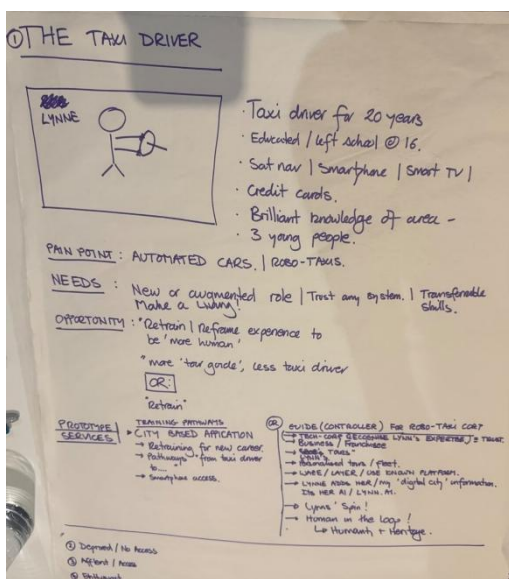 ① THE TAXI DRIVER
LYNNE
· Taxi driver for 20 years
· Educated / left school @ 16.
· Sat nav | Smartphone | Smart TV |
· Credit cards.
· Brilliant knowledge of area –
3 young people.
PAIN POINT : AUTOMATED CARS. | ROBO-TAXIS.
NEEDS : New or augmented role | Trust any system. | Transferable skills.
Make a Living!
OPPORTUNITY : "Retrain | Reframe experience to
be 'more human'
"more 'tour guide', less taxi driver
OR:
"Retrain"
PROTOTYPE SERVICES
TRAINING PATHWAYS
CITY BASED APPLICATION
→ Retraining for new career.
→ Pathways "from taxi driver
to....."
→ Smartphone access.
OR GUIDE (CONTROLLER) FOR ROBO-TAXI CORP
→ TECH-CORP RECOGNISE LYNN'S EXPERTISE, & TRUST.
Business / Franchisee
→ LYNN'S TOURS"
→ Personalised tours / fleet.
→ LAYER / USE KNOWN PLATFORM.
→ LYNNE ADDS HER / my 'digital city' information.
ITS HER AI / LYNN.AI.
→ Lynns 'Spin'!
→ Human in the loop!
↳ Humanity + Heritage.
① Deprived / No Access
② Affluent / Access
③